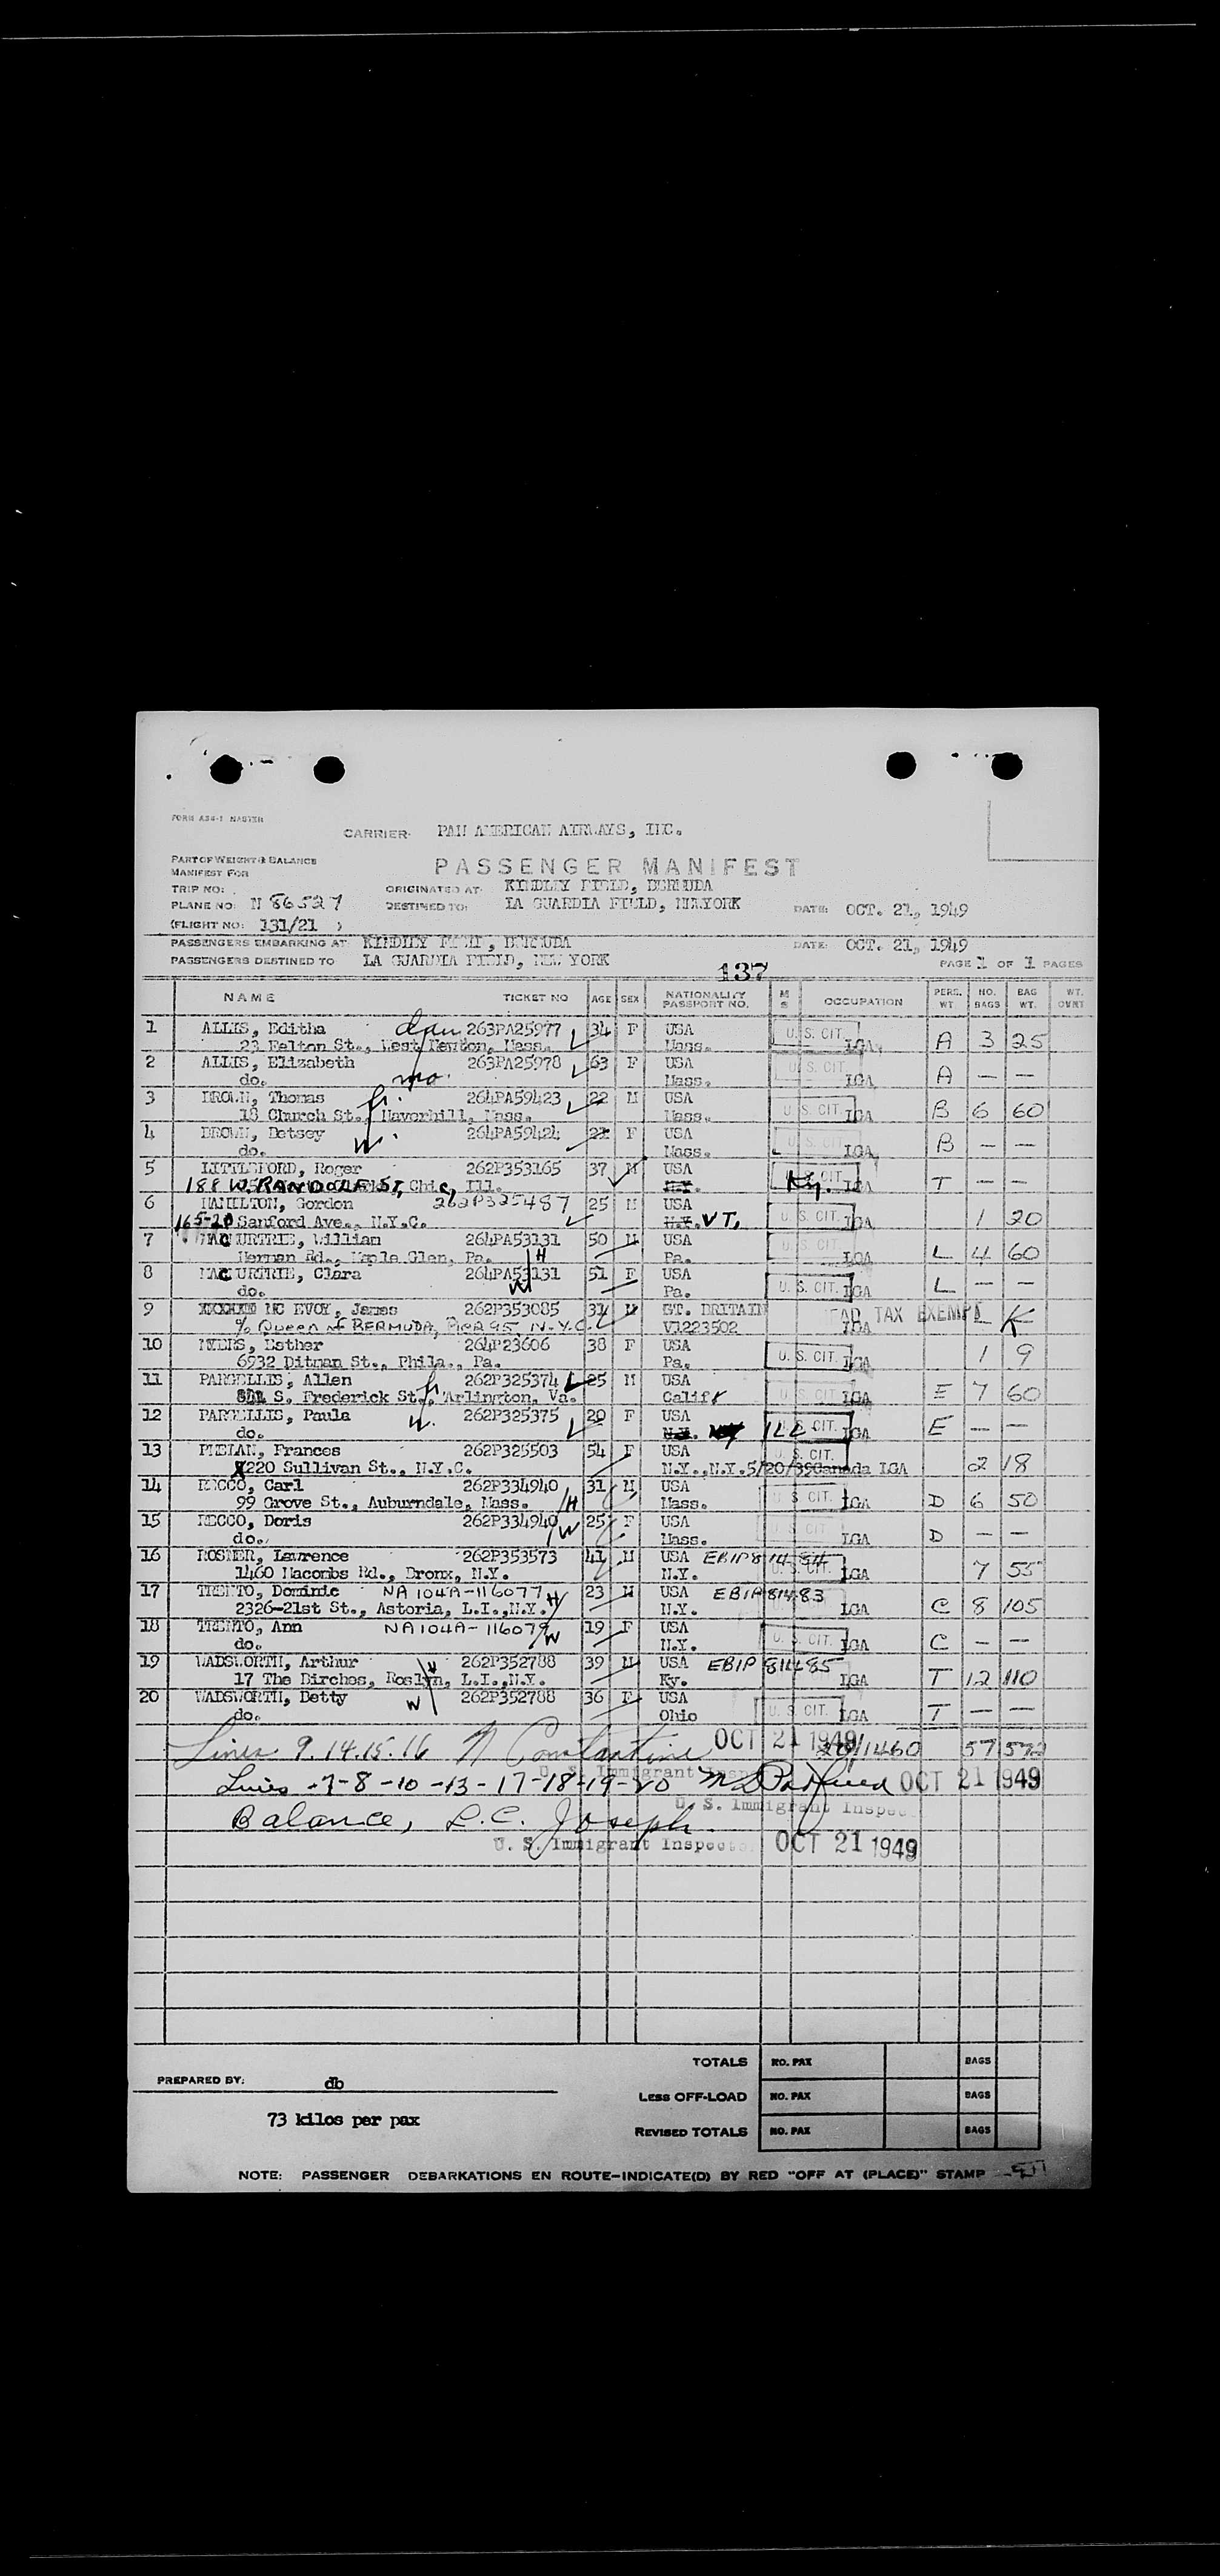 FORM A34-1 MASTER
CARRIER: PAN AMERICAN AIRWAYS, INC.
PART OF WEIGHT & BALANCE
MANIFEST FOR
PASSENGER MANIFEST
TRIP NO:
ORIGINATED AT: KINDLEY FIELD, BERMUDA
PLANE NO: N 86527
DESTINED TO: LA GUARDIA FIELD, NEWYORK
DATE: OCT. 21, 1949
(FLIGHT NO: 131/21 )
PASSENGERS EMBARKING AT KINDLEY FIELD, BERMUDA DATE: OCT. 21, 1949
PASSENGERS DESTINED TO LA GUARDIA FIELD, NEW YORK
137
PAGE 1 OF 1 PAGES
NAME TICKET NO AGE SEX NATIONALITY PASSPORT NO. M S OCCUPATION PERS. WT NO. BAGS BAG WT. WT. OVWT
1 ALLIS, Editha dau 263PA25977 34 F USA U. S. CIT. A 3 25
23 Felton St., West Newton, Mass. Mass. LGA
2 ALLIS, Elizabeth 263PA25978 63 F USA U. S. CIT. A — —
do. mo. Mass. LGA
3 BROWN, Thomas h. 264PA59423 22 M USA U. S. CIT. B 6 60
18 Church St., Haverhill, Mass. Mass. LGA
4 BROWN, Betsey 264PA59424 21 F USA U. S. CIT. B — —
do. W. Mass. LGA
5 LITTLEFORD, Roger 262P353165 37 M USA T — —
188 W. RANDOLF ST, Chic, Ill. N.Y. Ky. LGA
6 HAMILTON, Gordon 262P325487 25 M USA U. S. CIT. 1 20
165-20 Sanford Ave., N.Y.C. N.Y. VT. LGA
7 MACMURTRIE, William 264PA53131 50 M USA U. S. CIT. L 4 60
Herman Rd., Maple Glen, Pa. H Pa. LGA
8 MACMURTRIE, Clara 264PA53131 51 F USA U. S. CIT. L — —
do. W Pa. LGA
9 MC EVOY, James 262P353085 31 M GT. BRITAIN HEAD TAX EXEMPT K
% QUEEN of BERMUDA, PIER 95 N.Y.C. V1223502 LGA
10 MYERS, Esther 264P23606 38 F USA U. S. CIT. 1 9
6932 Ditman St., Phila., Pa. Pa. LGA
11 PARCELLIS, Allen h. 262P325374 25 M USA U. S. CIT. E 7 60
811 S. Frederick St., Arlington, Va. Calif LGA
12 PARCELLIS, Paula W. 262P325375 20 F USA U. S. CIT. E — —
do. ILL LGA
13 PHELAN, Frances 262P325503 54 F USA U. S. CIT. 2 18
220 Sullivan St., N.Y.C. N.Y., N.Y. 5/20/39 Canada LGA
14 RECCO, Carl 262P334940 31 M USA U. S. CIT. D 6 50
99 Grove St., Auburndale, Mass. H Mass. LGA
15 RECCO, Doris 262P334940 25 F USA U. S. CIT. D — —
do. W Mass. LGA
16 ROSNER, Lawrence 262P353573 41 M USA EBIP 81484 U. S. CIT. 7 55
1460 Macombs Rd., Bronx, N.Y. N.Y. LGA
17 TRENTO, Dominic NA104A-116077 23 M USA EBIP 81483 C 8 105
2326-21st St., Astoria, L.I., N.Y. H N.Y. LGA
18 TRENTO, Ann NA104A-116079 19 F USA U. S. CIT. C — —
do. W N.Y. LGA
19 WADSWORTH, Arthur H 262P352788 39 M USA EBIP 81485 T 12 110
17 The Birches, Roslyn, L.I., N.Y. Ky. LGA
20 WADSWORTH, Betty W 262P352788 36 F USA U. S. CIT. T — —
do. Ohio LGA
Lines 9.14.15.16 N Constantine OCT 21 1949 20/1460 57 572
U. S. Immigrant Inspe
Lines -7-8-10-13-17-18-19-20 OCT 21 1949
U. S. Immigrant Inspec
Balance, L.C. Joseph.
U. S. Immigrant Inspecto OCT 21 1949
TOTALS NO. PAX BAGS
PREPARED BY: db
Less OFF-LOAD NO. PAX BAGS
73 kilos per pax
REVISED TOTALS NO. PAX BAGS
NOTE: PASSENGER DEBARKATIONS EN ROUTE-INDICATE(D) BY RED "OFF AT (PLACE)" STAMP